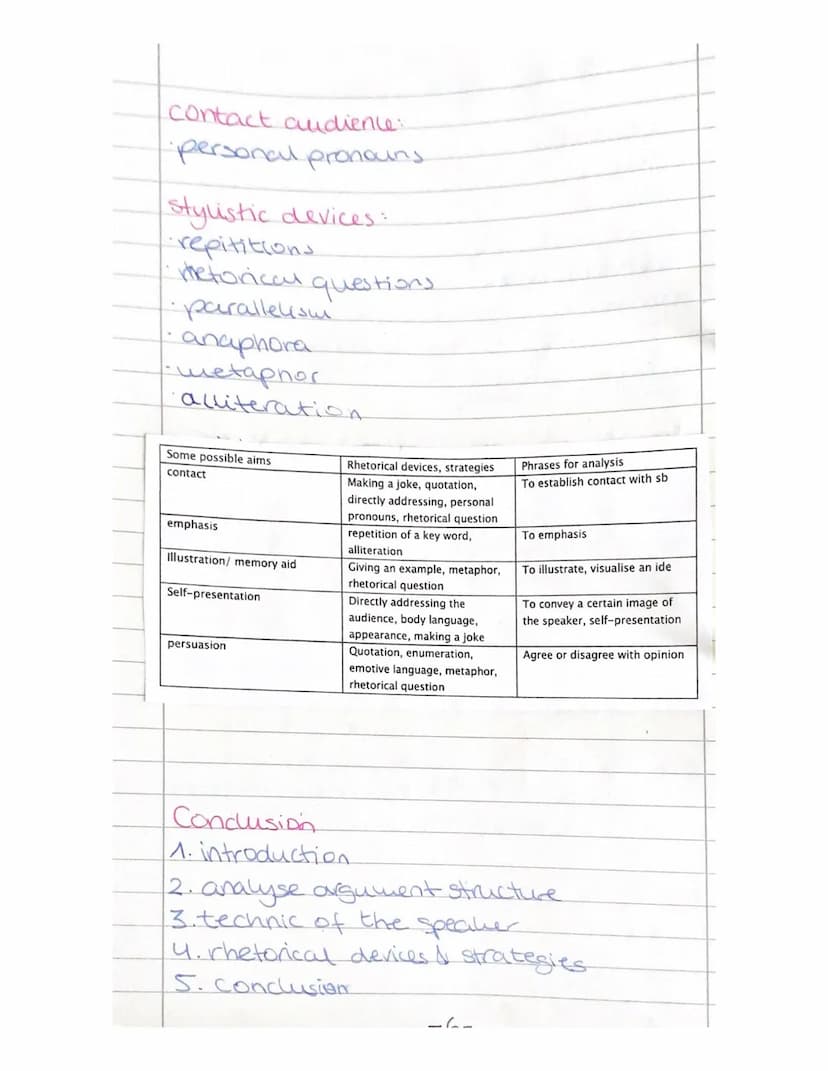 contact audience:
·personal pronouns
stylistic devices:
·repititions
·rhetorical questions
·parallelism
·anaphora
·metaphor
·alliteration
Some possible aims
Rhetorical devices, strategies
Phrases for analysis
contact
Making a joke, quotation,
directly addressing, personal
pronouns, rhetorical question
To establish contact with sb
emphasis
repetition of a key word,
alliteration
To emphasis
Illustration/ memory aid
Giving an example, metaphor,
rhetorical question
To illustrate, visualise an ide
Self-presentation
Directly addressing the
audience, body language,
appearance, making a joke
To convey a certain image of
the speaker, self-presentation
persuasion
Quotation, enumeration,
emotive language, metaphor,
rhetorical question
Agree or disagree with opinion
Conclusion
1. introduction
2. analyse argument structure
3. technic of the speaker
4. rhetorical devices & strategies
5. conclusion